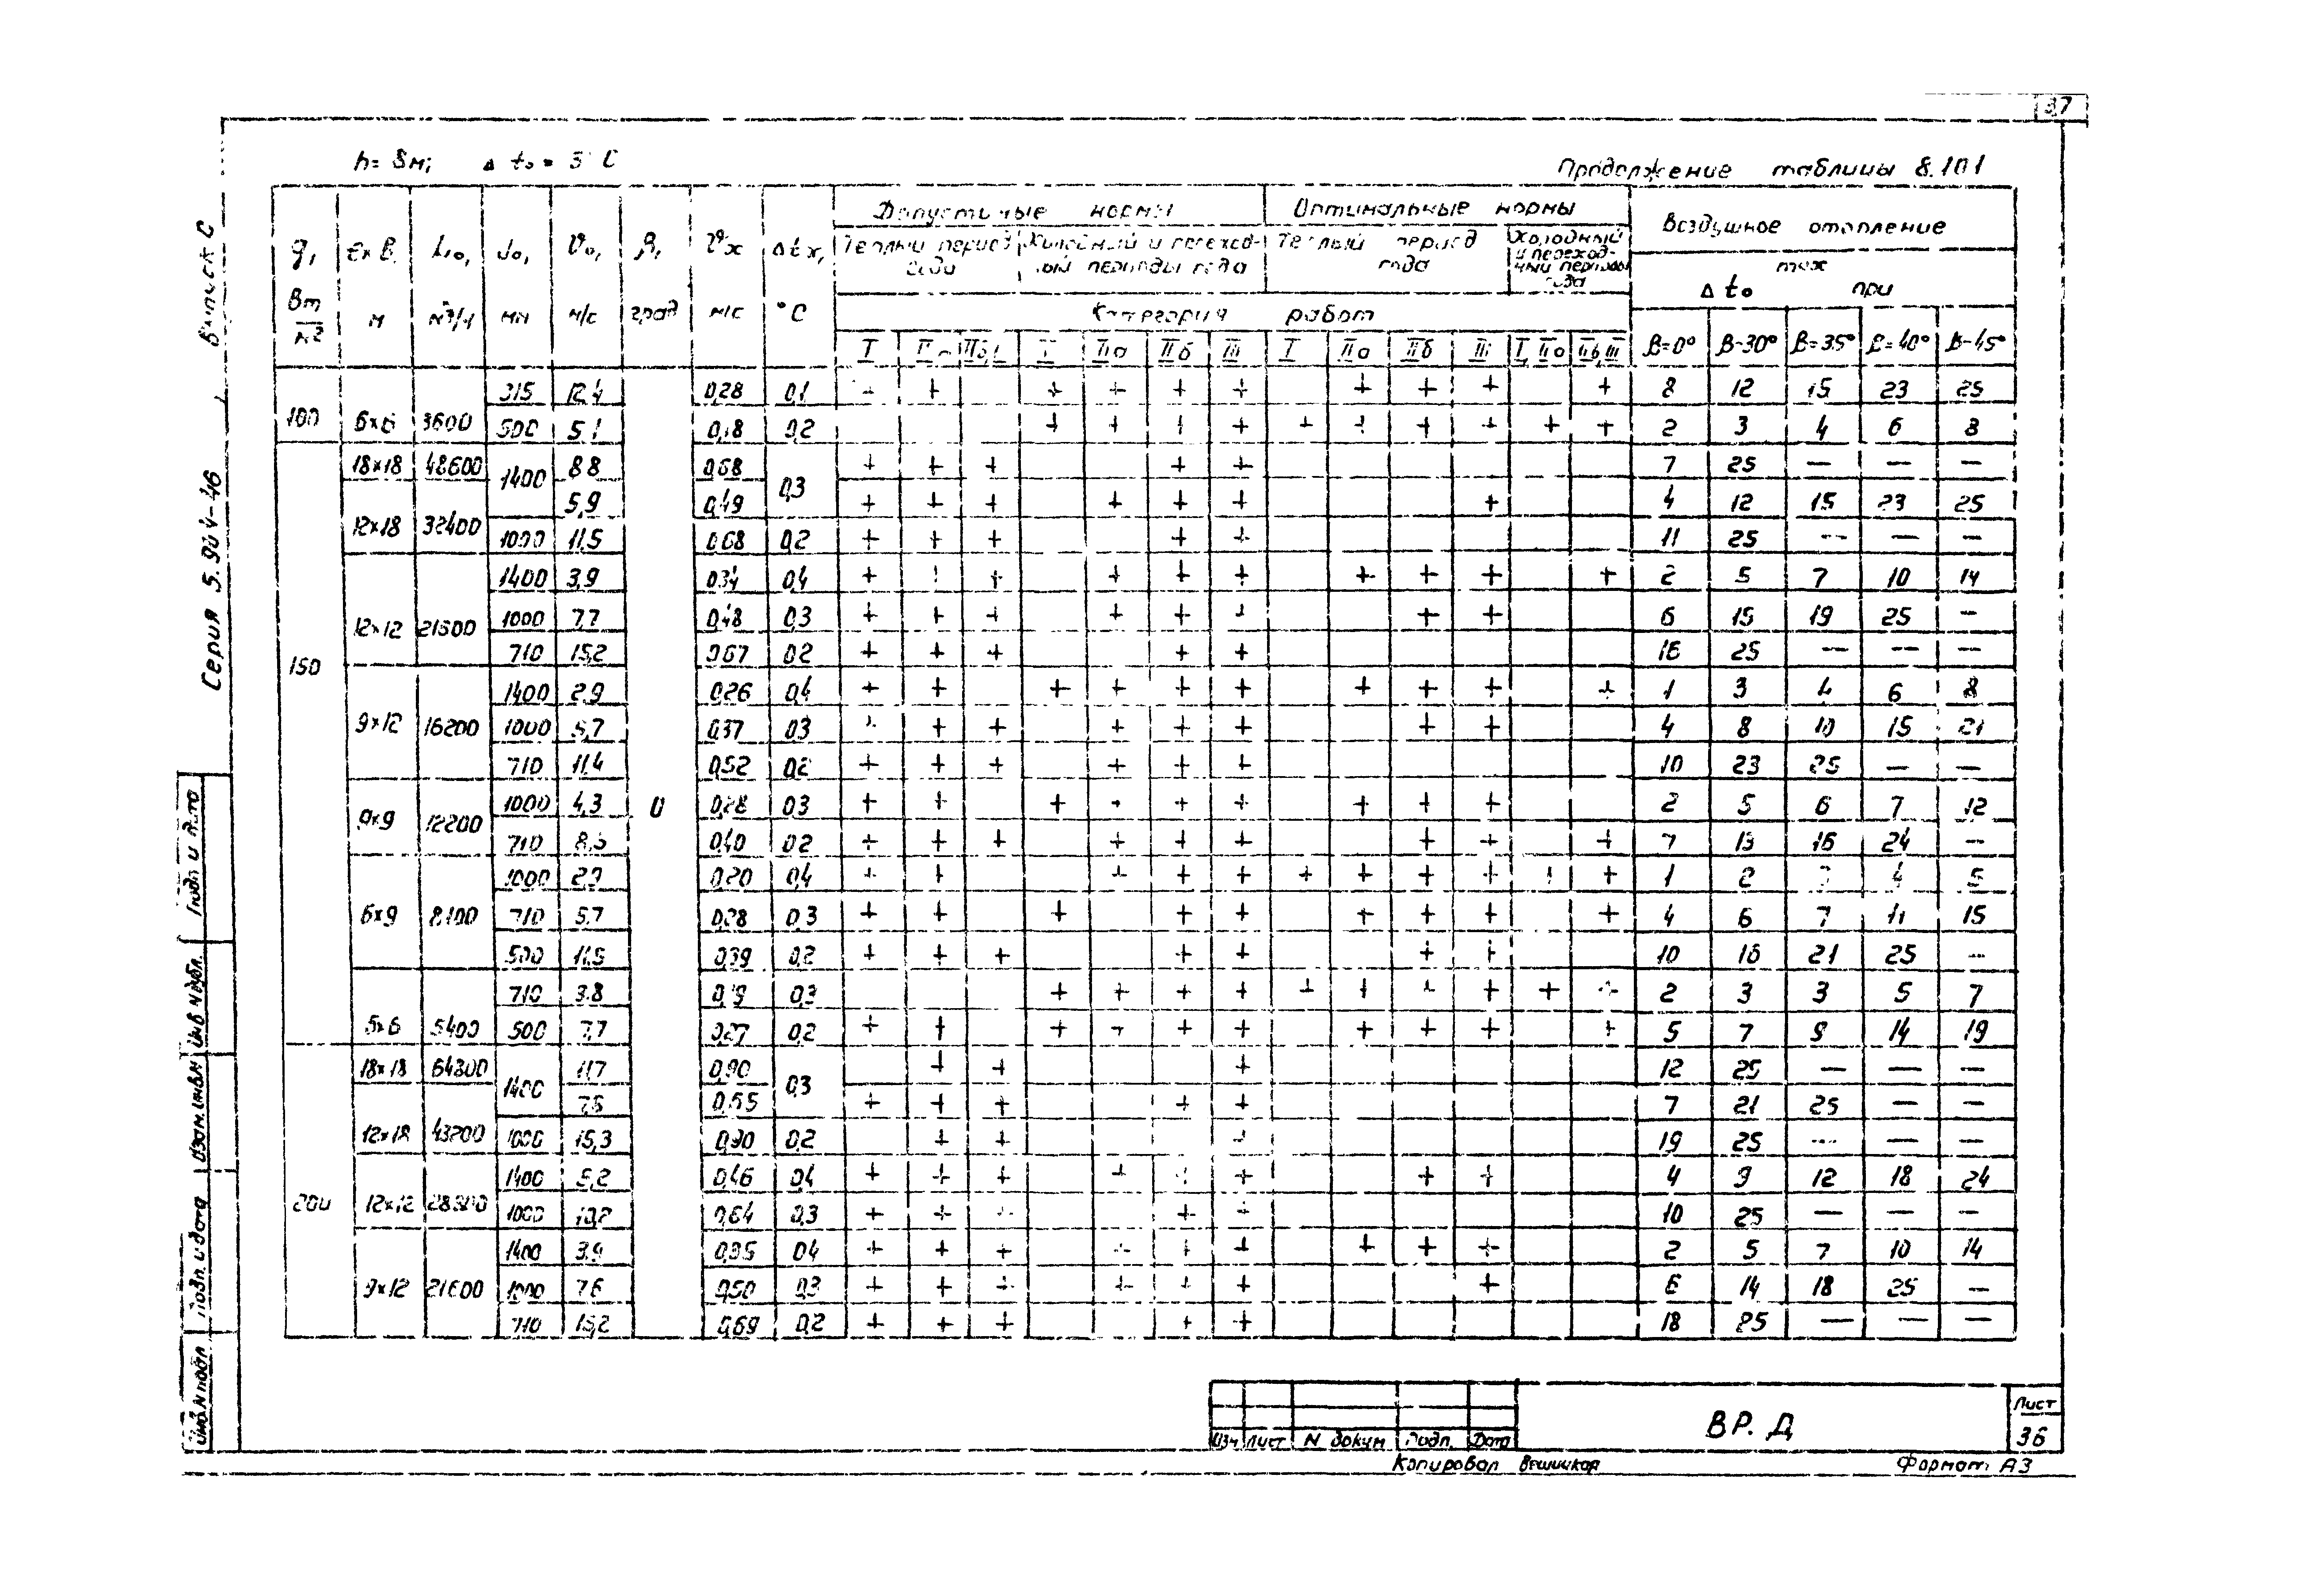 37
h= 8м; Δ t₀ = 3°C
Продолжение таблицы 8.101
q, Вт/м² | ℓ×В, м | L₀, м³/ч | d₀, мм | υ₀, м/с | β, град | υx м/с | Δtx, °C | Допустимые нормы | Оптимальные нормы | Воздушное отопление
Теплый период года | Холодный и переходный периоды года | Теплый период года | Холодный и переходный периоды года | Δ t₀ max при
Категория работ
I | IIа | IIб, | I | IIа | IIб | III | I | IIа | IIб | III | I, IIа | IIб, III | β=0° | β=30° | β=35° | β=40° | β=45°
100 | 6×6 | 3600 | 315 | 12,4 | 0,28 | 0,1 | + | + | | + | + | + | + | | + | + | + | | + | 8 | 12 | 15 | 23 | 25
500 | 5,1 | 0,18 | 0,2 | | | | + | + | + | + | + | + | + | + | + | + | 2 | 3 | 4 | 6 | 8
150 | 18×18 | 48600 | 1400 | 8,8 | 0,68 | 0,3 | + | + | + | | | + | + | | | | | | | 7 | 25 | — | — | —
12×18 | 32400 | 5,9 | 0,49 | + | + | + | | + | + | + | | | | + | | | 4 | 12 | 15 | 23 | 25
1000 | 11,5 | 0,68 | 0,2 | + | + | + | | | + | + | | | | | | | 11 | 25 | — | — | —
12×12 | 21600 | 1400 | 3,9 | 0,34 | 0,4 | + | + | + | | + | + | + | | + | + | + | | + | 2 | 5 | 7 | 10 | 14
1000 | 7,7 | 0,48 | 0,3 | + | + | + | | + | + | + | | | + | + | | | 6 | 15 | 19 | 25 | —
710 | 15,2 | 0,67 | 0,2 | + | + | + | | | + | + | | | | | | | 16 | 25 | — | — | —
9×12 | 16200 | 1400 | 2,9 | 0,26 | 0,4 | + | + | | + | + | + | + | | + | + | + | | + | 1 | 3 | 4 | 6 | 8
1000 | 5,7 | 0,37 | 0,3 | + | + | + | | + | + | + | | | + | + | | | 4 | 8 | 10 | 15 | 21
710 | 11,4 | 0,52 | 0,2 | + | + | + | | + | + | + | | | | | | | 10 | 23 | 25 | — | —
9×9 | 12200 | 1000 | 4,3 | 0 | 0,28 | 0,3 | + | + | | + | + | + | + | | + | + | + | | | 2 | 5 | 6 | 7 | 12
710 | 8,5 | 0,40 | 0,2 | + | + | + | | + | + | + | | | + | + | | + | 7 | 13 | 16 | 24 | —
6×9 | 8100 | 1000 | 2,9 | 0,20 | 0,4 | + | + | | | + | + | + | + | + | + | + | + | + | 1 | 2 | 4 | 5
710 | 5,7 | 0,28 | 0,3 | + | + | | + | | + | + | | + | + | + | | + | 4 | 6 | 7 | 11 | 15
500 | 11,5 | 0,39 | 0,2 | + | + | + | | | + | + | | | + | + | | | 10 | 16 | 21 | 25 | —
5×6 | 5400 | 710 | 3,8 | 0,19 | 0,3 | | | | + | + | + | + | + | + | + | + | + | + | 2 | 3 | 3 | 5 | 7
500 | 7,7 | 0,27 | 0,2 | + | + | | + | + | + | + | | + | + | + | | + | 5 | 7 | 9 | 14 | 19
200 | 18×18 | 64800 | 1400 | 11,7 | 0,90 | 0,3 | | + | + | | | | + | | | | | | | 12 | 25 | — | — | —
12×18 | 43200 | 7,8 | 0,65 | + | + | + | | | + | + | | | | | | | 7 | 21 | 25 | — | —
1000 | 15,3 | 0,90 | 0,2 | | + | + | | | | + | | | | | | | 19 | 25 | — | — | —
12×12 | 28800 | 1400 | 5,2 | 0,46 | 0,4 | + | + | + | | + | + | + | | | + | + | | | 4 | 9 | 12 | 18 | 24
1000 | 10,2 | 0,64 | 0,3 | + | + | + | | | + | + | | | | | | | 10 | 25 | — | — | —
9×12 | 21600 | 1400 | 3,9 | 0,35 | 0,4 | + | + | + | | + | + | + | | + | + | + | | | 2 | 5 | 7 | 10 | 14
1000 | 7,6 | 0,50 | 0,3 | + | + | + | | + | + | + | | | | + | | | 6 | 14 | 18 | 25 | —
710 | 15,2 | 0,69 | 0,2 | + | + | + | | | + | + | | | | | | | 18 | 25 | — | — | —
Серия 5.904-46 , Выпуск С
Подп и дата
Инв N дубл.
Взам. инв N
Подп. и дата
Инв. N подл
Изм Лист N докум Подп. Дата
ВР. Д
Лист
36
Копировал
Формат А3